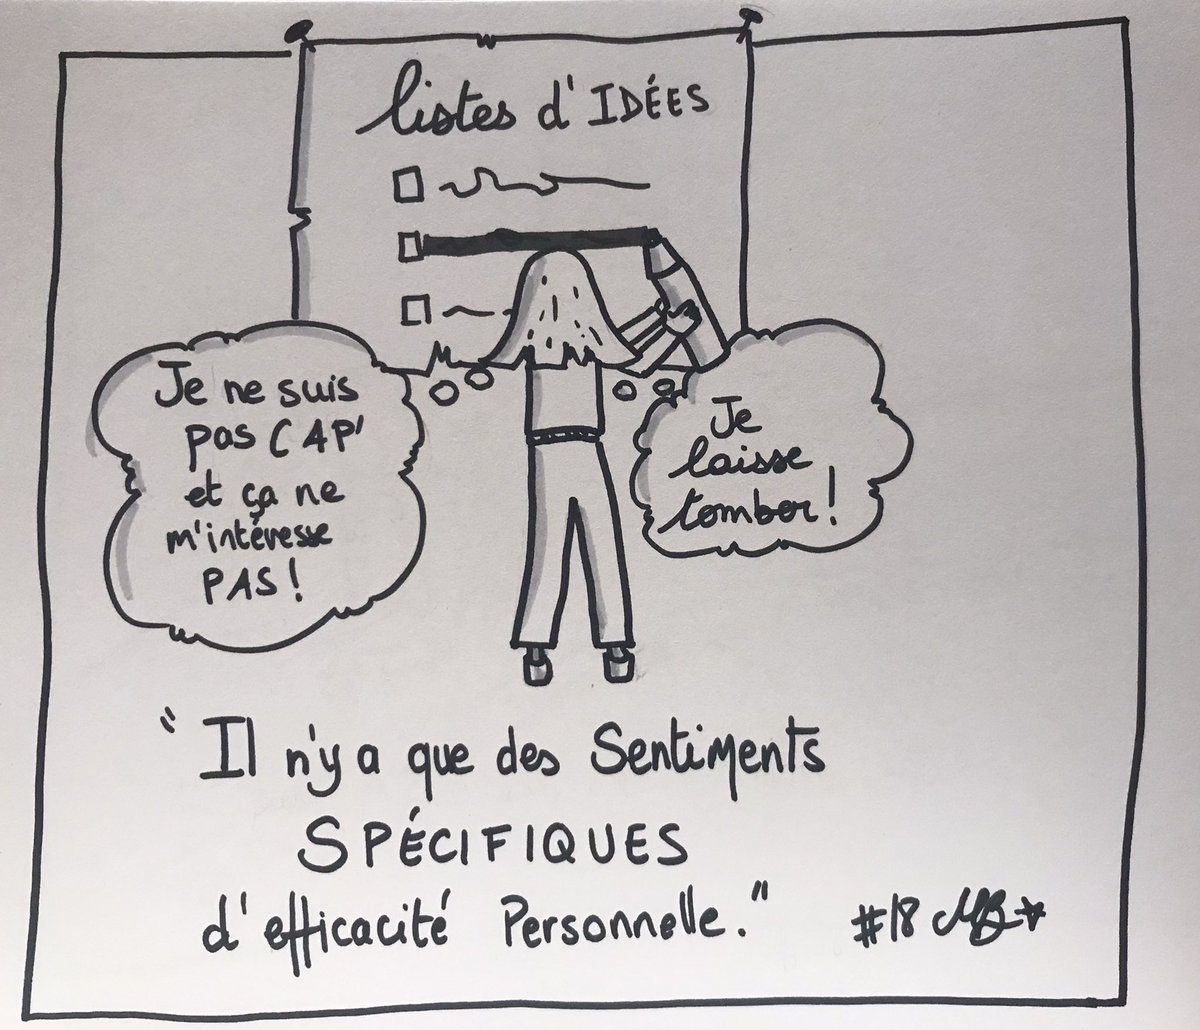 listes d'IDÉES
Je ne suis
pas CAP'
et ça ne
m'intéresse
PAS !
Je
laisse
tomber !
"Il n'y a que des Sentiments
SPÉCIFIQUES
d'efficacité Personnelle."
#18 MB